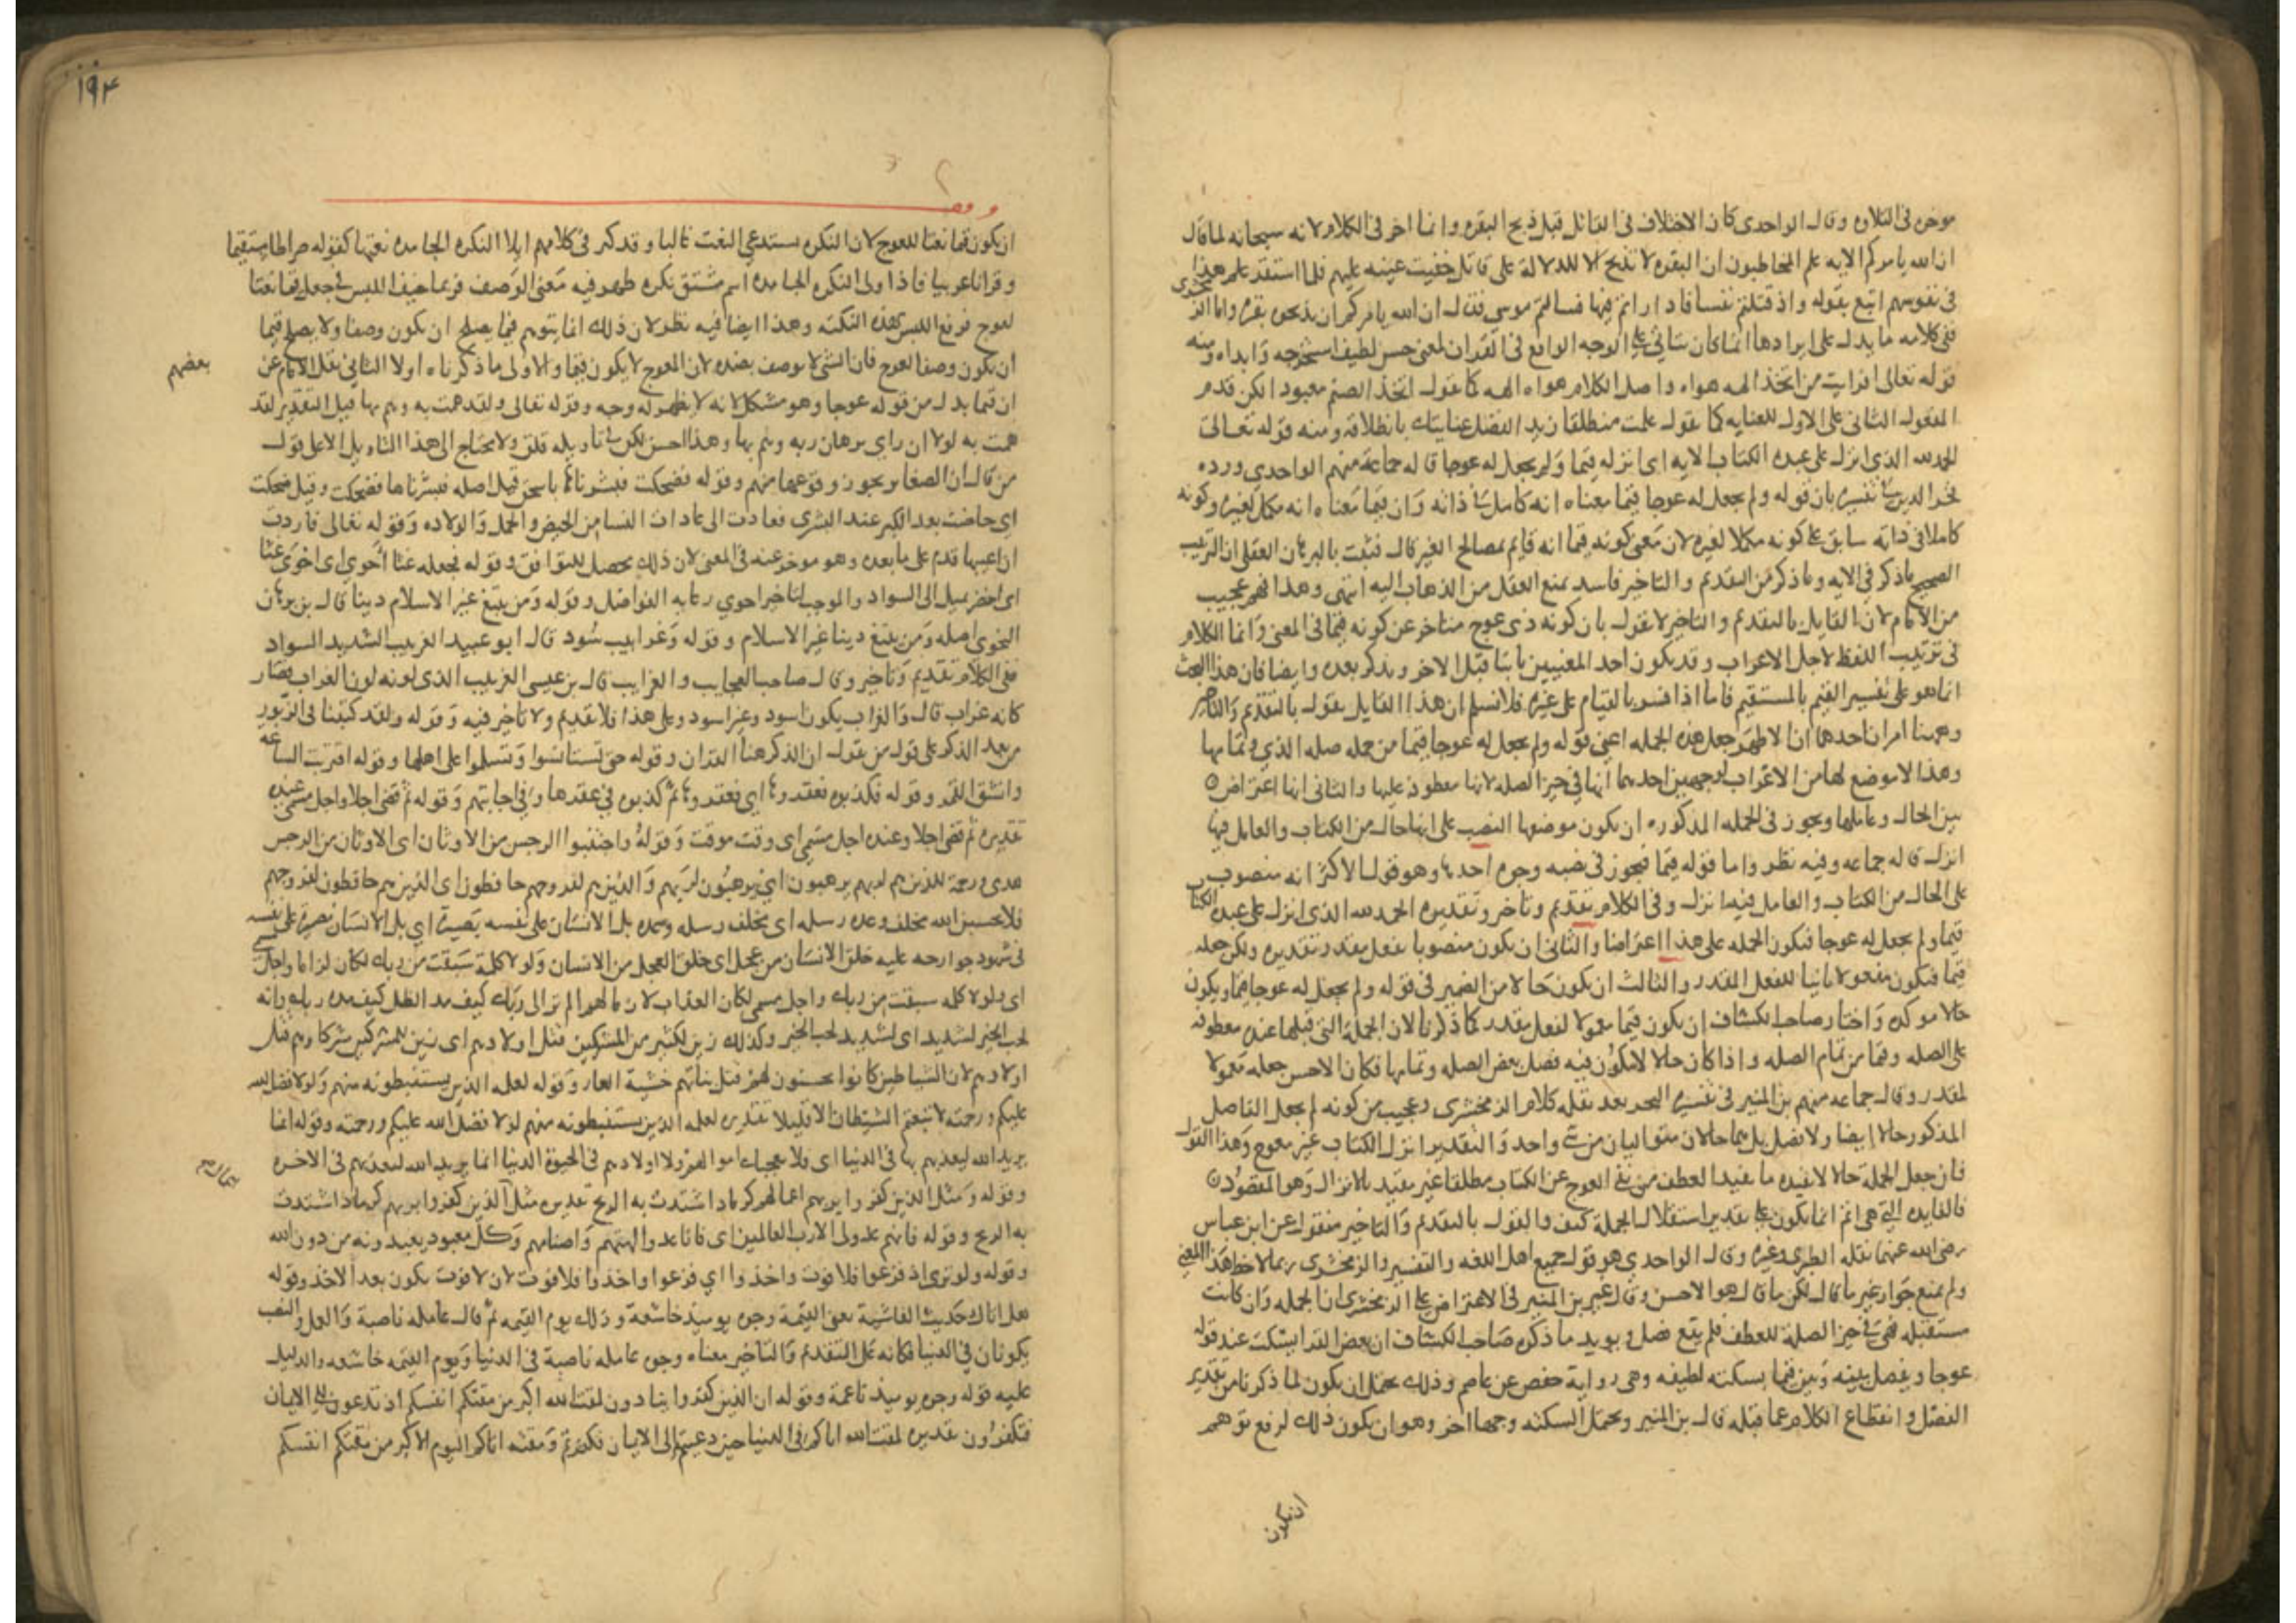 موخره فى التلاوه وقال الواحدى كان الاختلاف فى القاتل قبل ذبح البقره وانما اخر فى الكلام لانه سبحانه لما قال
ان الله يامركم الايه علم المخاطبون ان البقره لا تذبح الا للدلالة على قاتل خفيت عينه عليهم فلما استقر علم هذا
فى نفوسهم اتبع بقوله واذ قتلتم نفسا فاداراتم فيها فسالتم موسى فقال ان الله يامركم ان تذبحوا بقره واما الزمخشرى
ففى كلامه ما يدل على ايرادها انما كان يتاتى على الوجه الواقع فى القران لمعنى حسن لطيف استخرجه وابداه ومنه
قوله تعالى افرايت من اتخذ الهه هواه واصل الكلام هواه الهه كما تقول اتخذ الصنم معبودا لكن قدم
المفعول الثانى على الاول للعنايه كما تقول علمت منطلقا زيدا لفضل عنايتك بانطلاقه ومنه قوله تعالى
الحمد لله الذى انزل على عبده الكتاب الايه اى انزله قيما ولم يجعل له عوجا قاله جماعة منهم الواحدي ورده
فخر الدين فى تفسيره بان قوله ولم يجعل له عوجا قيما معناه انه كامل فى ذاته وان قيما معناه انه مكمل لغيره وكونه
كاملا فى ذاته سابق على كونه مكملا لغيره لان معنى كونه قيما انه قايم بمصالح الغير قال فثبت بالبرهان العقلى ان الترتيب
الصحيح ما ذكر فى الايه وما ذكر من التقديم والتاخير فاسد يمنع العقل من الذهاب اليه انتهى وهذا فهم عجيب
من الامام لان القايل بالتقديم والتاخير لا يقول بان كونه ذى عوج متاخر عن كونه قيما فى المعنى وانما الكلام
فى ترتيب اللفظ لاجل الاعراب وقد يكون احد المعنيين ثابتا قبل الاخر ويذكر بعده وايضا فان هذا البحث
انما هو على تفسير القيم بالمستقيم فاما اذا فسر بالقيام على غيره فلا نسلم ان هذا القايل يقول بالتقديم والتاخير
وههنا امران احدهما ان الاظهر جعل هذه الجمله اعنى قوله ولم يجعل له عوجا قيما من جمله صله الذي وتمامها
وهذا لا موضع لها من الاعراب لوجهين احدهما انها فى حيز الصله لانها معطوفه عليها والثانى انها اعتراض
بين الحال وعاملها ويجوز فى الجمله المذكوره ان يكون موضعها النصب على انها حال من الكتاب والعامل فيها
انزل قاله جماعه وفيه نظر واما قوله قيما فيجوز فى نصبه وجوه احدها وهو قول الاكثر انه منصوب
على الحال من الكتاب والعامل فيه انزل وفى الكلام تقديم وتاخر وتقديره الحمد لله الذى انزل على عبده الكتاب
قيما ولم يجعل له عوجا فتكون الجمله على هذا اعتراضا والثانى ان يكون منصوبا بفعل مقدر تقديره ولكن جعله
قيما فيكون مفعولا ثانيا للفعل المقدر والثالث ان يكون حالا من الضمير فى قوله ولم يجعل له عوجا قيما ويكون
حالا موكده واختار صاحب الكشاف ان يكون قيما معمولا لفعل مقدر كما ذكرنا لان الجملة التى قبلها عنده معطوفه
على الصله وقيما من تمام الصله واذا كان حالا لا يكون فيه فصل بعض الصله وتمامها فكان الاحسن جعله معمولا
لمقدر وقال جماعه منهم بن المنير فى تفسيره البحر بعد نقله كلام الزمخشرى وعجيب من كونه لم يجعل الفاصل
المذكور حالا ايضا ولا فصل بل هما حالان متواليان من شى واحد والتقدير انزل الكتاب غير معوج وهذا القول
فان جعل الجملة حالا لا يفيده ما يفيد العطف من نفى العوج عن الكتاب مطلقا غير مقيد بالانزال وهو المقصود
فالفايده التى هى اتم انما يكون على تقدير استقلال الجملة كيف والقول بالتقديم والتاخير منقول عن ابن عباس
رضى الله عنهما نقله الطبرى وغيره وقال الواحدي هو قول جميع اهل اللغه والتفسير والزمخشرى ربما لاحظ هذا المعنى
ولم يمنع جواز غير ما قال لكن ما قال هو الاحسن وقال غير بن المنير فى الاعتراض على الزمخشرى ان الجمله وان كانت
مستقبله فهى فى حيز الصلة للعطف فلم يقع فصل ويويد ما ذكره صاحب الكشاف ان بعض القرا يسكت عند قوله
عوجا ويفصل بينه وبين قيما بسكته لطيفه وهى رواية حفص عن عاصم وذلك يحتمل ان يكون لما ذكرنا من تقدير
الفصل وانقطاع الكلام عما قبله قال بن المنير ويحتمل السكته وجها اخر وهو ان يكون ذلك لرفع توهم
ان يكون
١٩٤
ان يكون قيما نعتا للعوج لان النكره يستدعى النعت غالبا وقد كثر فى كلامهم ايلا النكره الجامده نعتها كقوله صراطا مستقيما
وقرانا عربيا فاذا ولى النكره الجامده اسم مشتق نكره ظهر فيه معنى الوصف فربما خيف اللبس فى جعل قيما نعتا
لعوج فرفع اللبس بهذه النكته وهذا ايضا فيه نظر لان ذلك انما يتوهم فيما يصلح ان يكون وصفا ولا يصلح قيما
ان يكون وصفا لعوج فان الشى لا يوصف بضده لان العوج لا يكون قيما والاولى ما ذكرناه اولا الثانى نقل الامام عن
بعضهم
ان قيما بدل من قوله عوجا وهو مشكل لانه لا يظهر له وجه وقوله تعالى ولقد همت به وهم بها قيل التقدير لقد
همت به لولا ان راي برهان ربه وهم بها وهذا احسن لكن فى تاويله قلق ولا يحتاج الى هذا التاويل الا على قول
من قال ان الصغاير يجوز وقوعها منهم وقوله فضحكت فبشرناها باسحق قيل اصله فبشرناها فضحكت وقيل ضحكت
اي حاضت بعد الكبر عند البشرى فعادت الى عادات النسا من الحيض والحمل والولاده وقوله تعالى فاردت
ان اعيبها قدم على ما بعده وهو موخر عنه فى المعنى لان ذلك يحصل للتوافق وقوله فجعله غثا احوى اى احوى غثا
اى اخضر يميل الى السواد والموجب لتاخير احوى رعايه الفواصل وقوله ومن يبتغ غير الاسلام دينا قال بن برهان
النحوى اصله ومن يبتغ دينا غير الاسلام وقوله وغرابيب سود قال ابو عبيد الغربيب الشديد السواد
ففى الكلام تقديم وتاخير وقال صاحب العجايب والغرايب قال بن عيسى الغربيب الذى لونه لون الغراب فصار
كانه غراب قال والغراب يكون اسود وغير اسود وعلى هذا فلا تقديم ولا تاخير فيه وقوله ولقد كتبنا فى الزبور
من بعد الذكر على قول من يقول ان الذكر هنا القران وقوله حتى تستانسوا وتسلموا على اهلها وقوله اقتربت الساعه
وانشق القمر وقوله فكذبوه فعقروها اي فعقروها ثم كذبوه فى عقرها وفى اجابتهم وقوله ثم قضى اجلا واجل مسمى عنده
تقديره ثم قضى اجلا وعنده اجل مسمى اى وقت موقت وقوله واجتنبوا الرجس من الاوثان اى الاوثان من الرجس
هدى ورحمة للذين هم لربهم يرهبون اي يرهبون لربهم والذين هم لفروجهم حافظون اى الذين هم حافظون لفروجهم
فلا تحسبن الله مخلف وعده رسله اى مخلف رسله وعده بل الانسان على نفسه بصيرة اي بل الانسان بصيرة على نفسه
فى شهود جوارحه عليه خلق الانسان من عجل اى خلق العجل من الانسان ولولا كلمة سبقت من ربك لكان لزاما واجل مسمى
اى ولولا كلمه سبقت من ربك واجل مسمى لكان العذاب لازما لهم الم تر الى ربك كيف مد الظل كيف مده ربك وانه
لحب الخير لشديد اى لشديد لحب الخير وكذلك زين لكثير من المشركين قتل اولادهم اى زين للمشركين شركاوهم قتل
اولادهم لان الشياطين كانوا يحسنون لهم قتل بناتهم خشية العار وقوله لعلمه الذين يستنبطونه منهم ولولا فضل الله
عليكم ورحمته لاتبعتم الشيطان الا قليلا تقديره لعلمه الذين يستنبطونه منهم لولا فضل الله عليكم ورحمته وقوله انما
يريد الله ليعذبهم بها فى الدنيا اى فلا تعجبك اموالهم ولا اولادهم فى الحيوة الدنيا انما يريد الله ليعذبهم فى الاخره
وقوله ومثل الذين كفروا بربهم اعمالهم كرماد اشتدت به الريح تقديره مثل الذين كفروا بربهم كرماد اشتدت
به الريح وقوله فانهم عدو لى الا رب العالمين اى فانا عدو الهتهم واصنامهم وكل معبود يعبدونه من دون الله
وقوله ولو ترى اذ فزعوا فلا فوت واخذوا اي فزعوا واخذوا فلا فوت لان لا فوت يكون بعد الاخذ وقوله
هل اتاك حديث الغاشية يعنى القيمة وجوه يوميذ خاشعة وذلك يوم القيمه ثم قال عامله ناصبة والعمل والنصب
يكونان فى الدنيا فكانه على التقديم والتاخير معناه وجوه عامله ناصبة فى الدنيا ويوم القيمه خاشعه والدليل
عليه قوله وجوه يوميذ ناعمة وقوله ان الذين كفروا ينادون لمقت الله اكبر من مقتكم انفسكم اذ تدعون الى الايمان
فتكفرون تقديره لمقت الله اياكم فى الدنيا حين دعيتم الى الايمان فكفرتم ومقته اياكم اليوم اكبر من مقتكم انفسكم